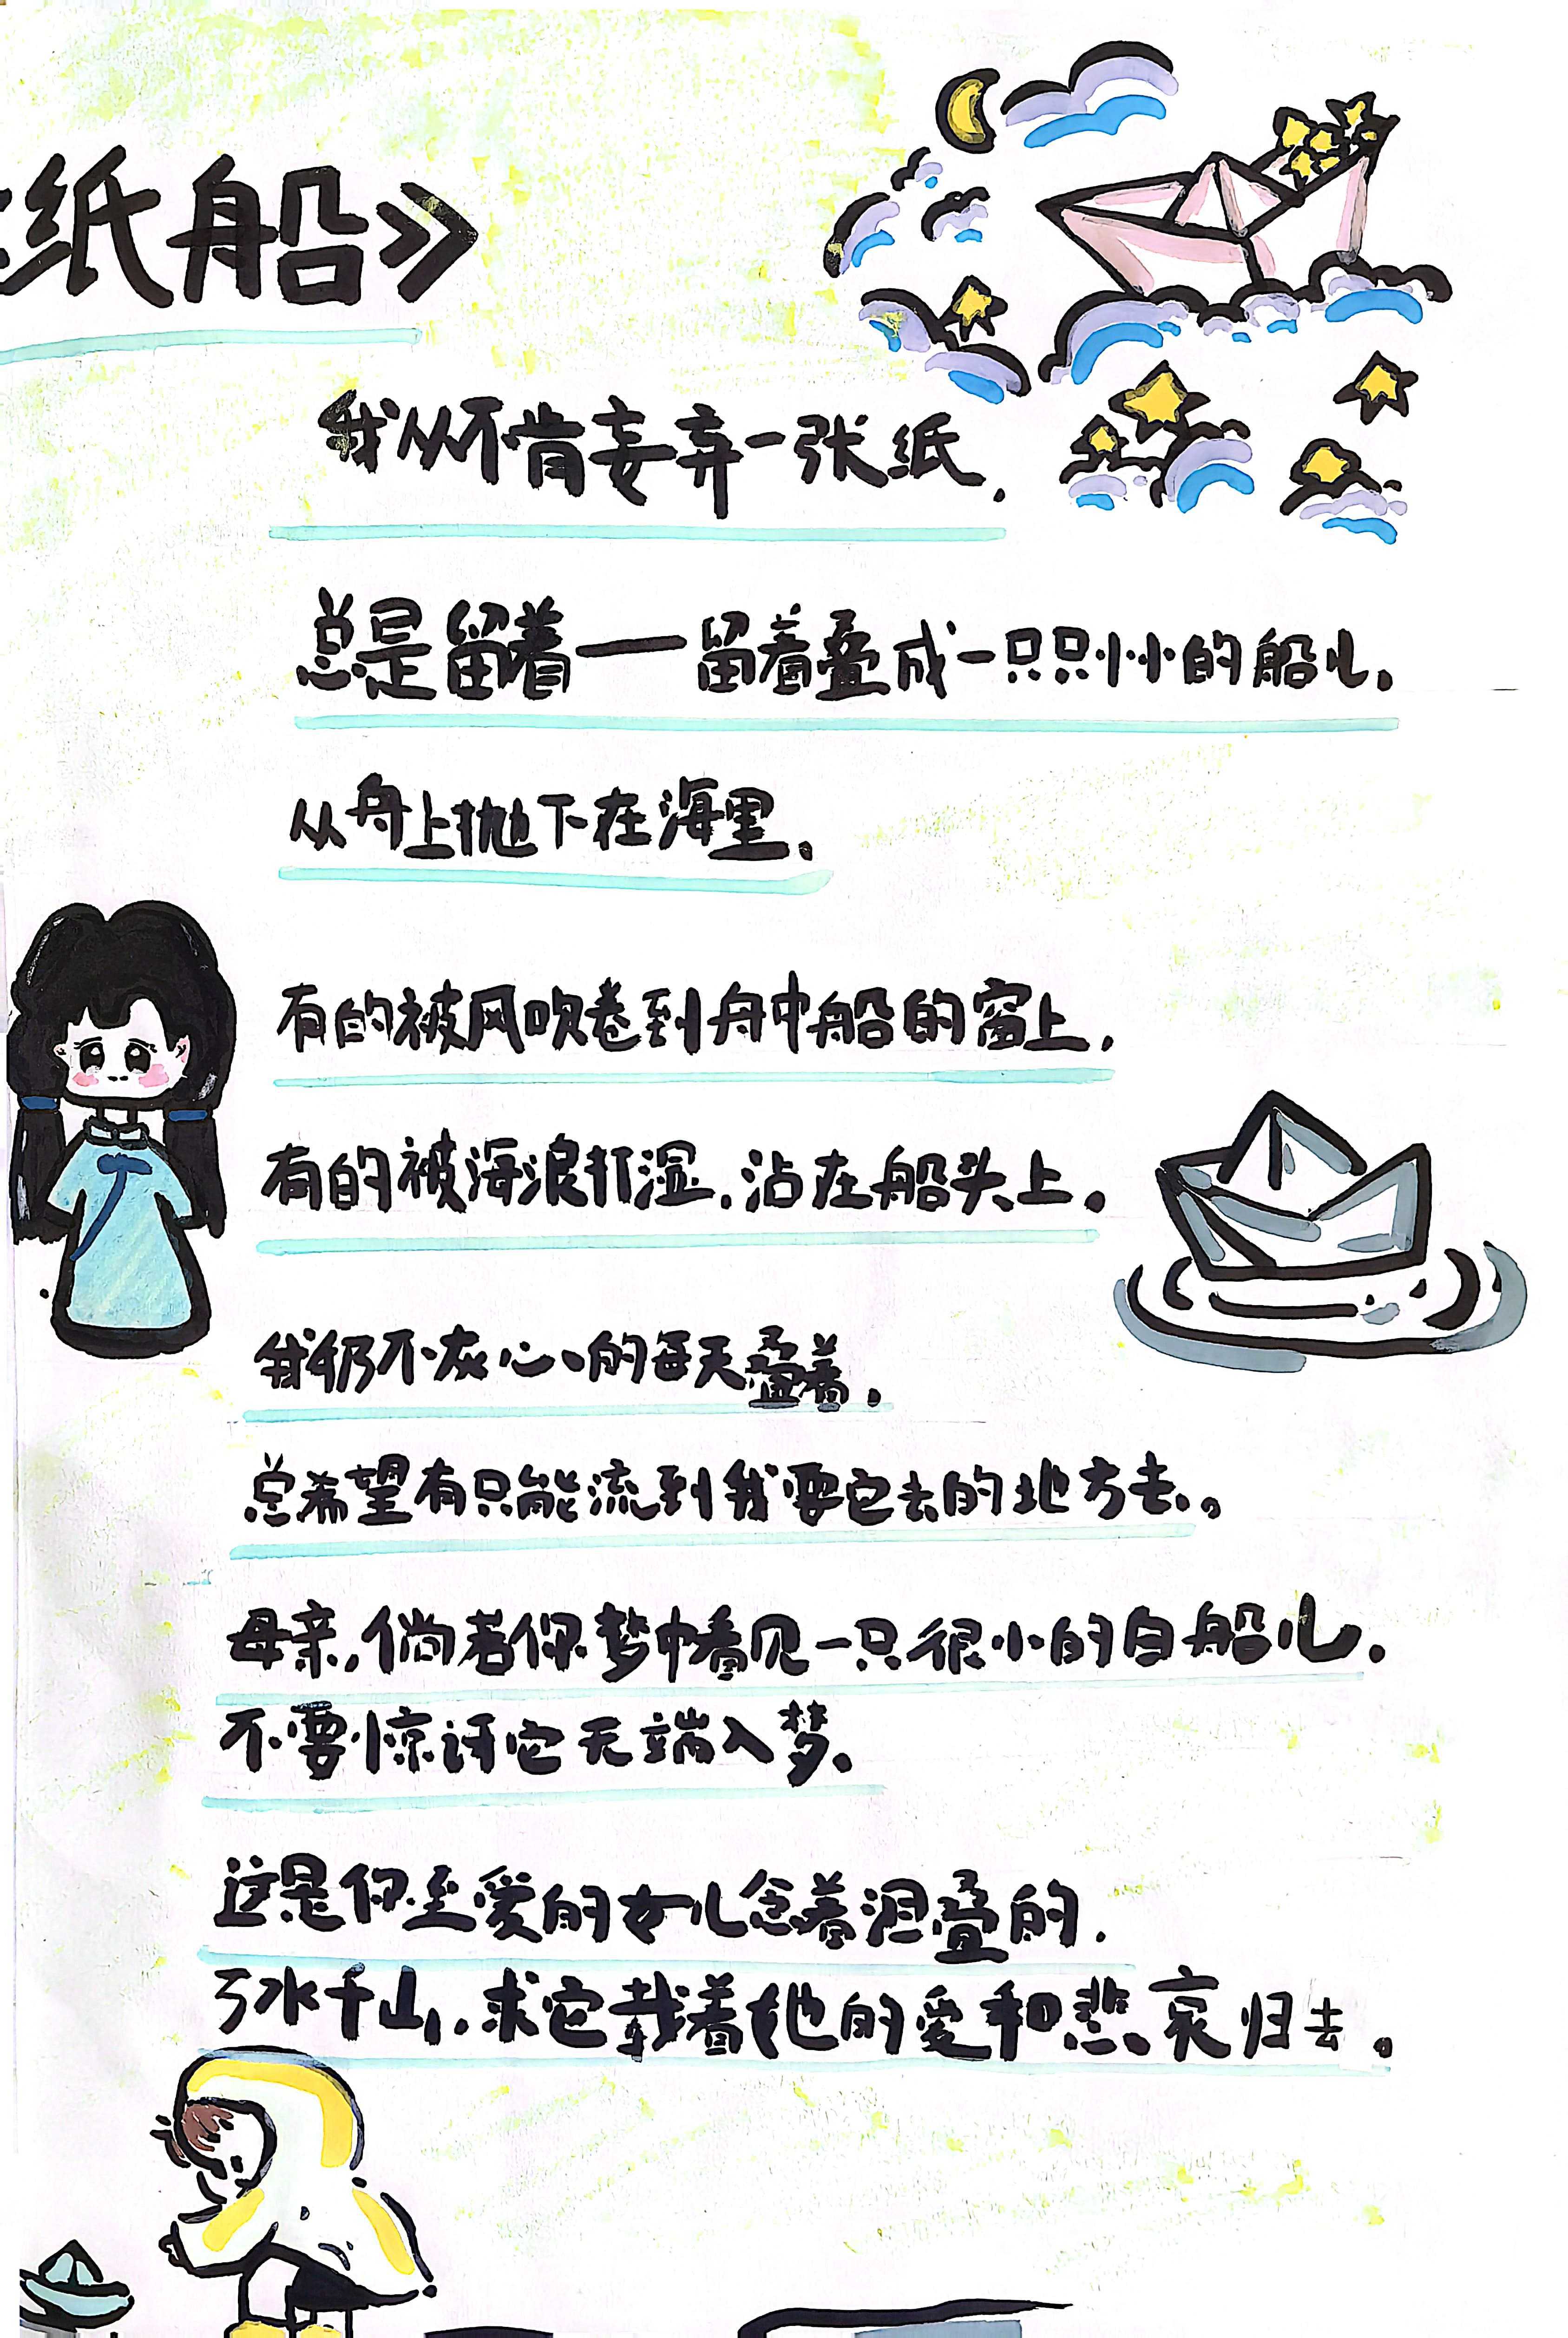 纸船》
我从不肯妄弃一张纸,
总是留着——留着叠成一只只小小的船儿.
从舟上抛下在海里.
有的被风吹卷到舟中船的窗上.
有的被海浪打湿,沾在船头上.
我仍不灰心的每天叠着.
总希望有只能流到我要它去的地方去。
母亲,倘若你梦中看见一只很小的白船儿.
不要惊讶它无端入梦.
这是你至爱的女儿含着泪叠的.
万水千山,求它载着她的爱和悲哀归去。